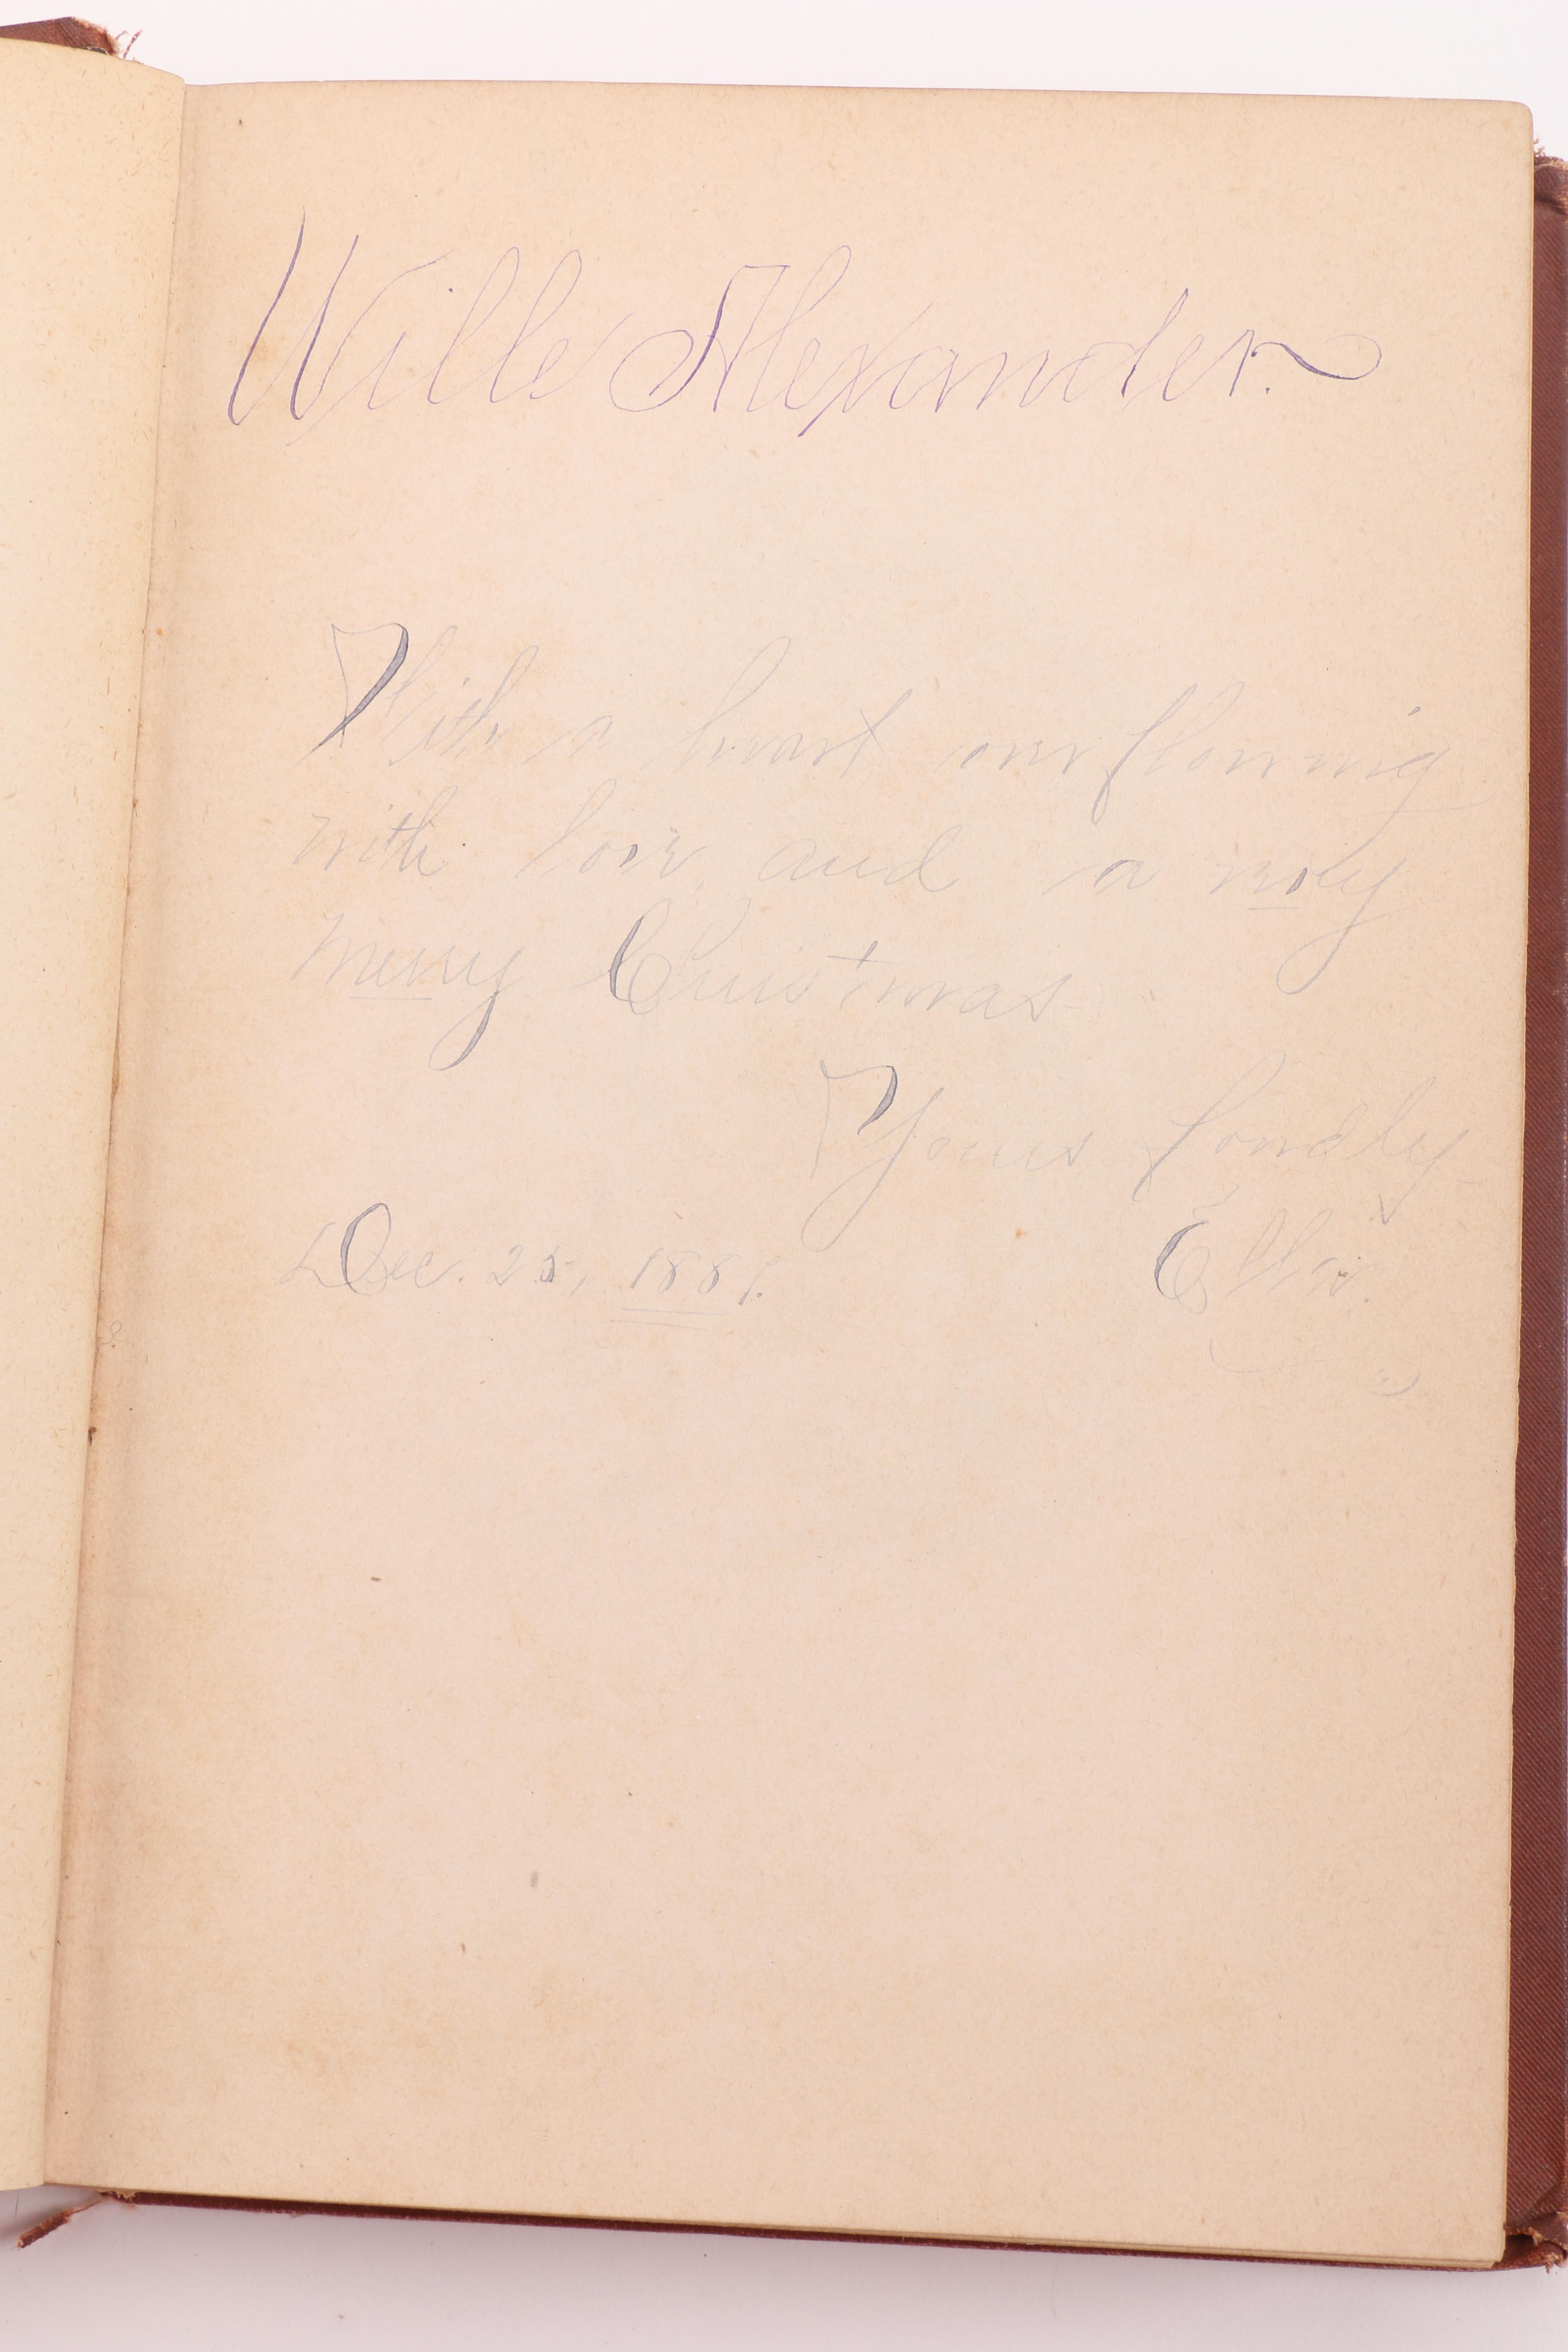 Wille Alexander.
With a heart overflowing
with love and a very
merry Christmas.
Yours fondly
Dec. 25, 1881. Ella.